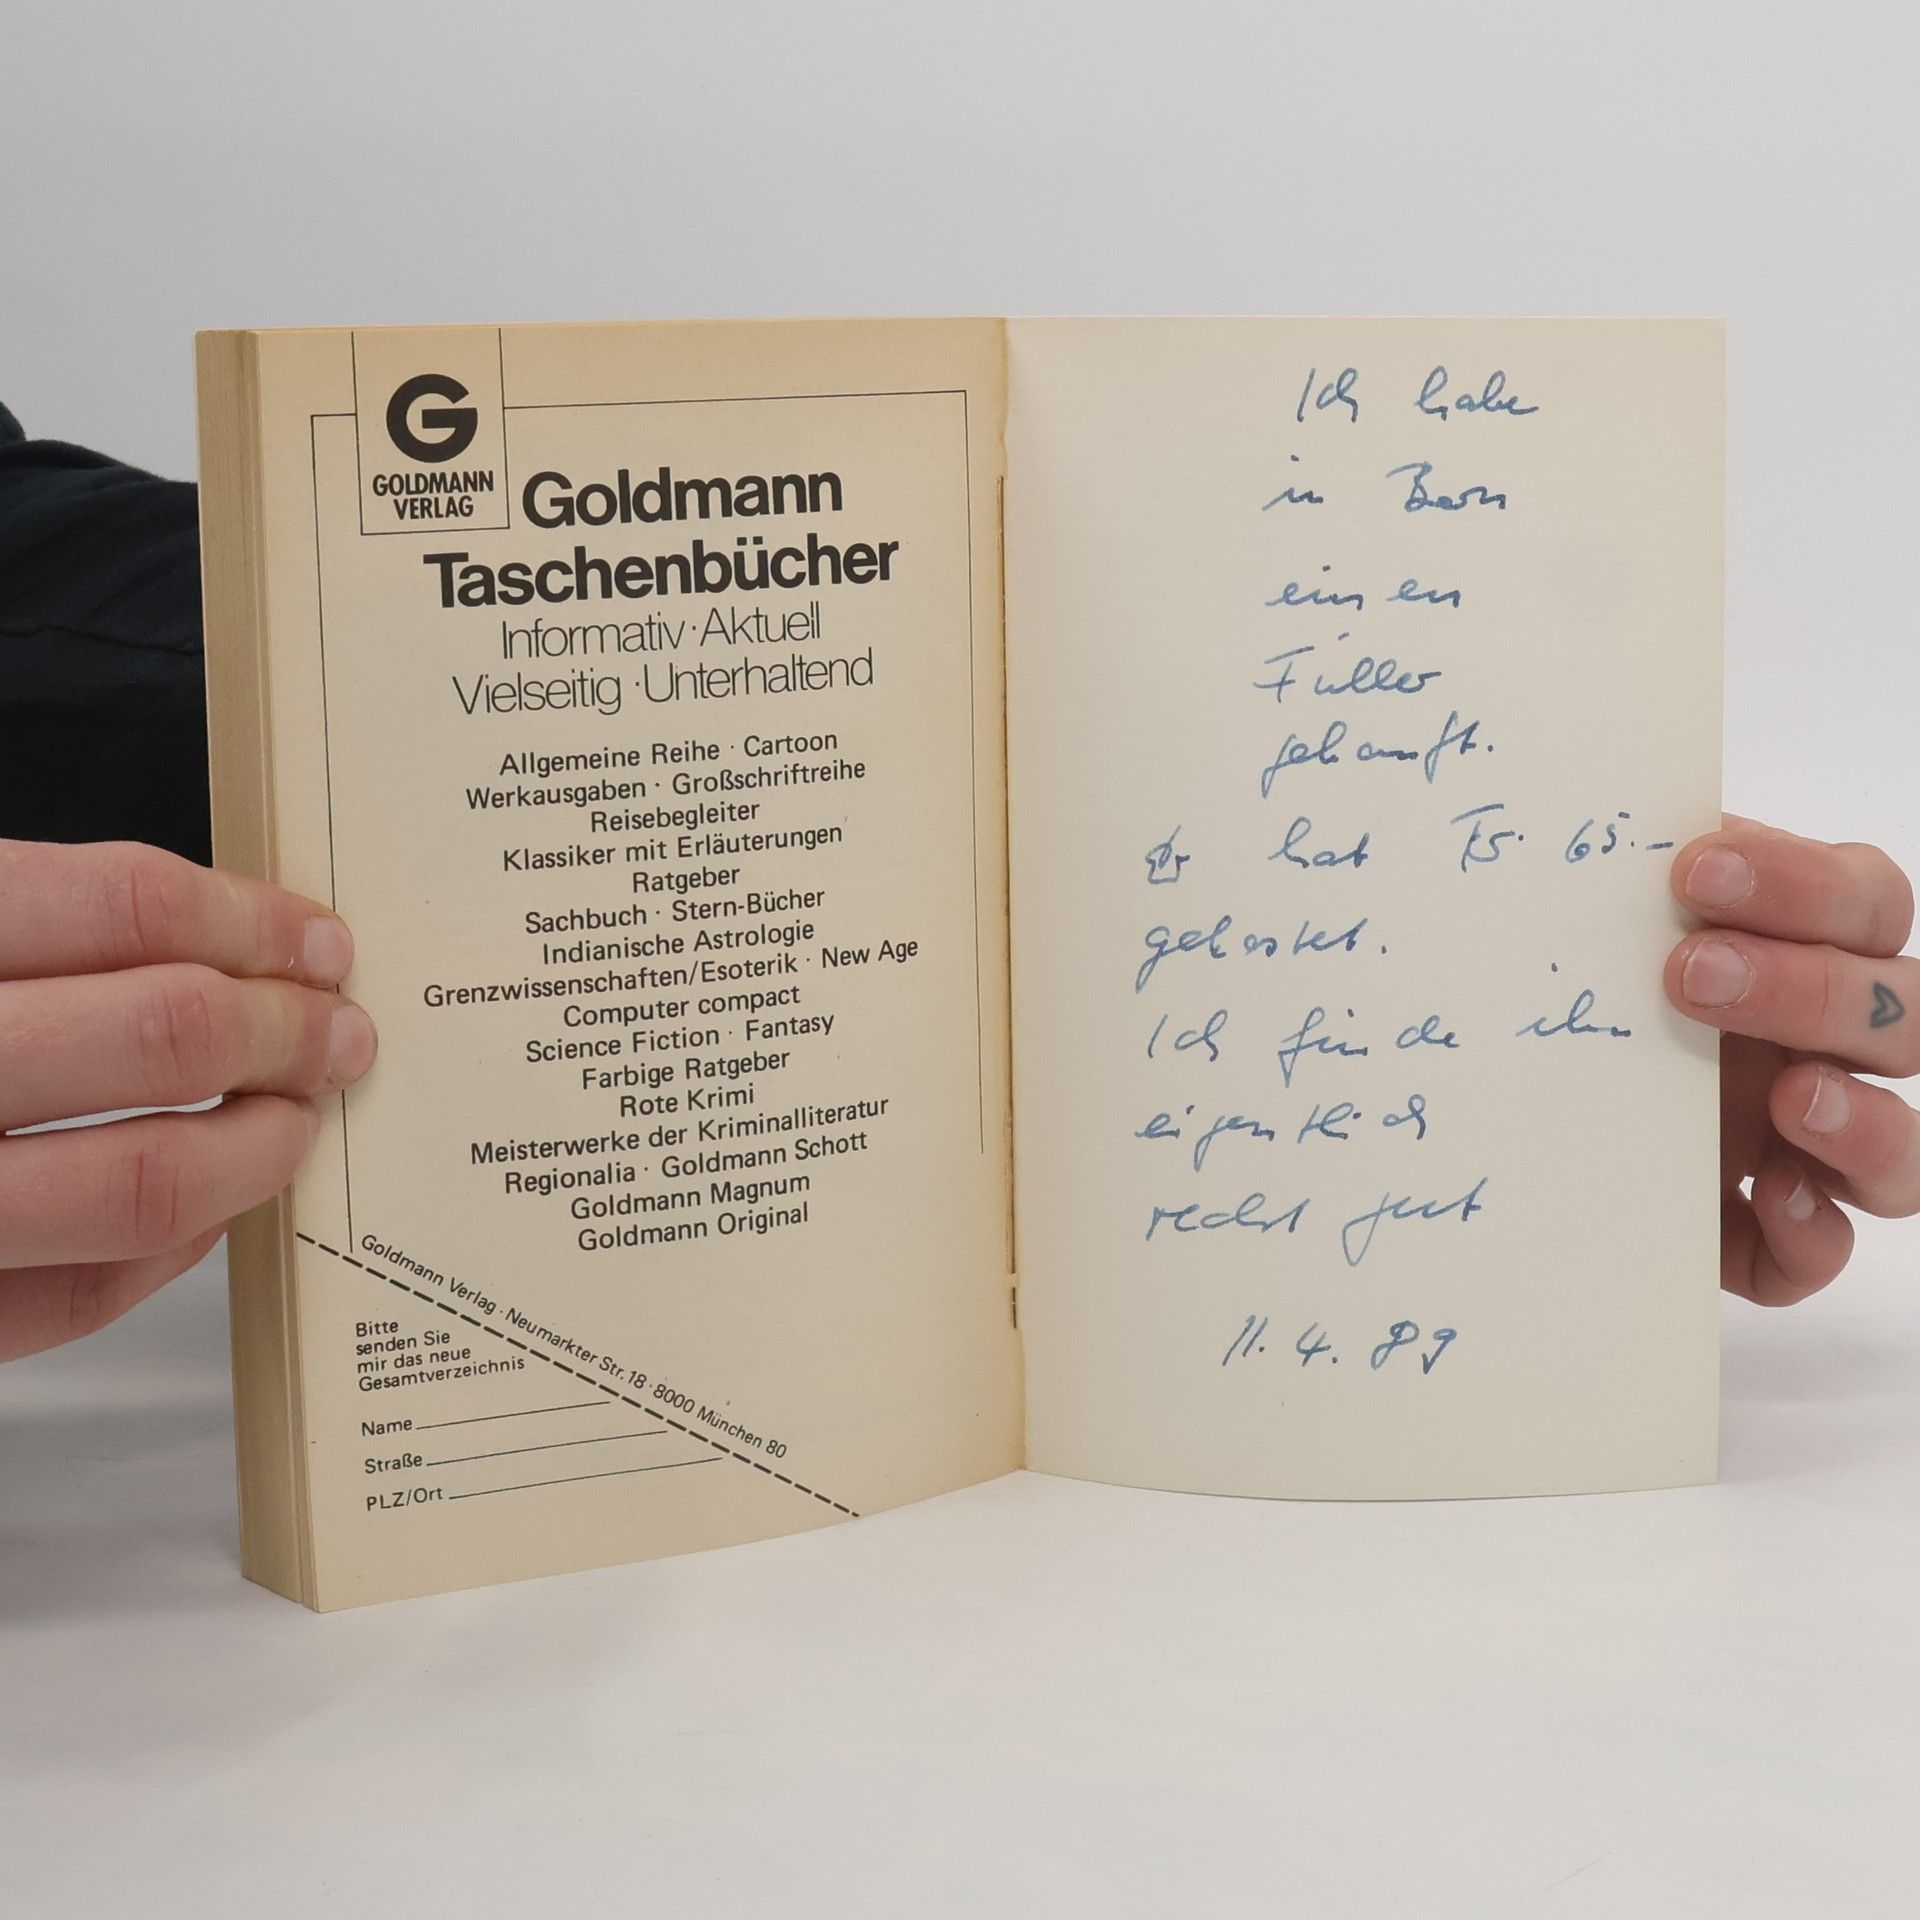 G
GOLDMANN
VERLAG
Goldmann
Taschenbücher
Informativ · Aktuell
Vielseitig · Unterhaltend
Allgemeine Reihe · Cartoon
Werkausgaben · Großschriftreihe
Reisebegleiter
Klassiker mit Erläuterungen
Ratgeber
Sachbuch · Stern-Bücher
Indianische Astrologie
Grenzwissenschaften/Esoterik · New Age
Computer compact
Science Fiction · Fantasy
Farbige Ratgeber
Rote Krimi
Meisterwerke der Kriminalliteratur
Regionalia · Goldmann Schott
Goldmann Magnum
Goldmann Original
Goldmann Verlag · Neumarkter Str. 18 · 8000 München 80
Bitte
senden Sie
mir das neue
Gesamtverzeichnis
Name
Straße
PLZ/Ort
Ich habe
in Bern
einen
Füller
gekauft.
Er hat Fr. 65.–
gekostet.
Ich finde ihn
eigentlich
recht gut
11. 4. 89